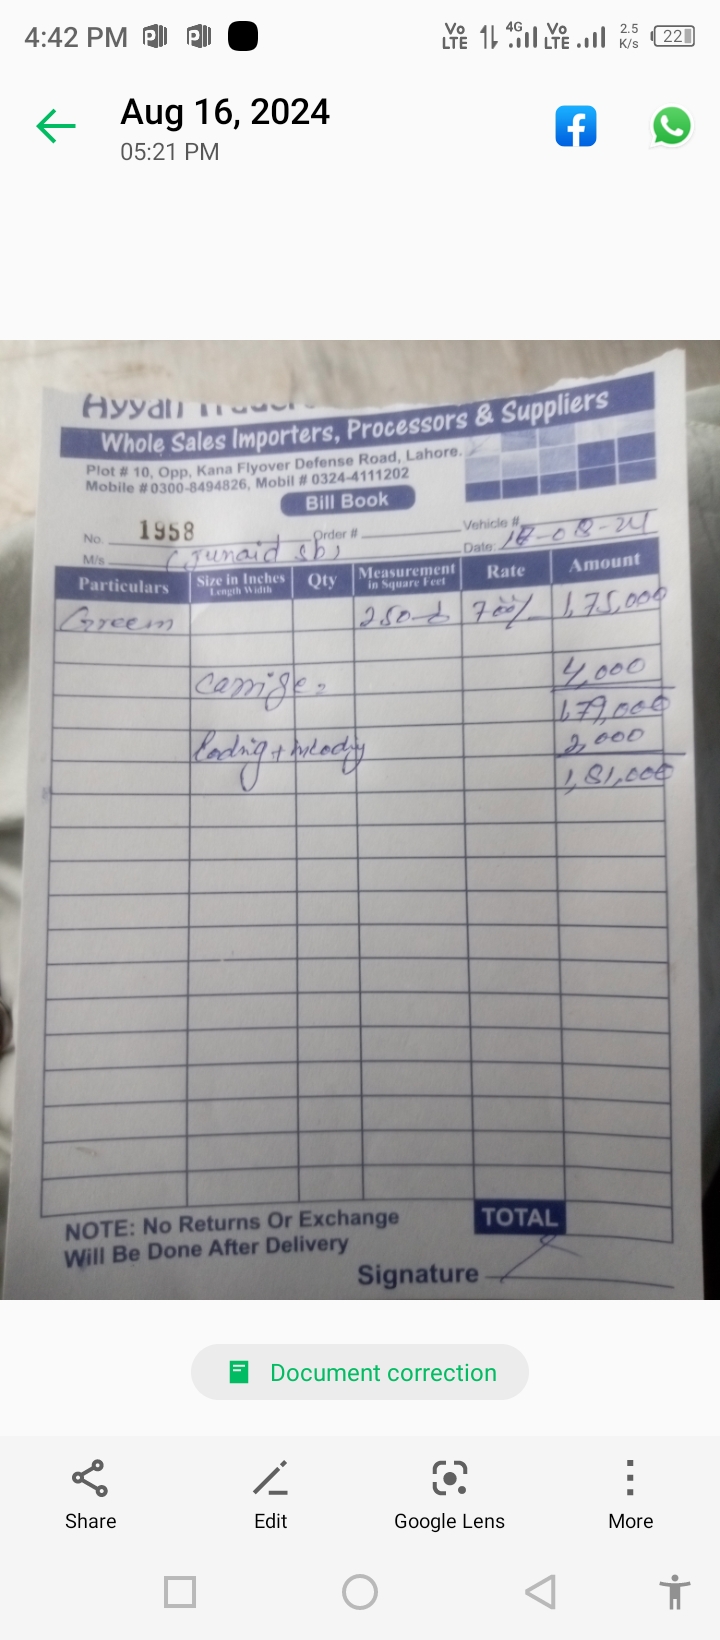 4:42 PM
Vo LTE 4G Vo LTE 2.5 K/s 22
Aug 16, 2024
05:21 PM
Whole Sales Importers, Processors & Suppliers
Plot # 10, Opp, Kana Flyover Defense Road, Lahore.
Mobile # 0300-8494826, Mobil # 0324-4111202
Bill Book
No. 1958 Order # Vehicle #
M/s (Junaid sb) Date: -08-24
Particulars Size in Inches Length Width Qty Measurement in Square Feet Rate Rate Amount
Greem 250 700/- 1,75,000
4,000
1,79,000
2,000
1,81,000
NOTE: No Returns Or Exchange
Will Be Done After Delivery
TOTAL
Signature
Document correction
Share Edit Google Lens More